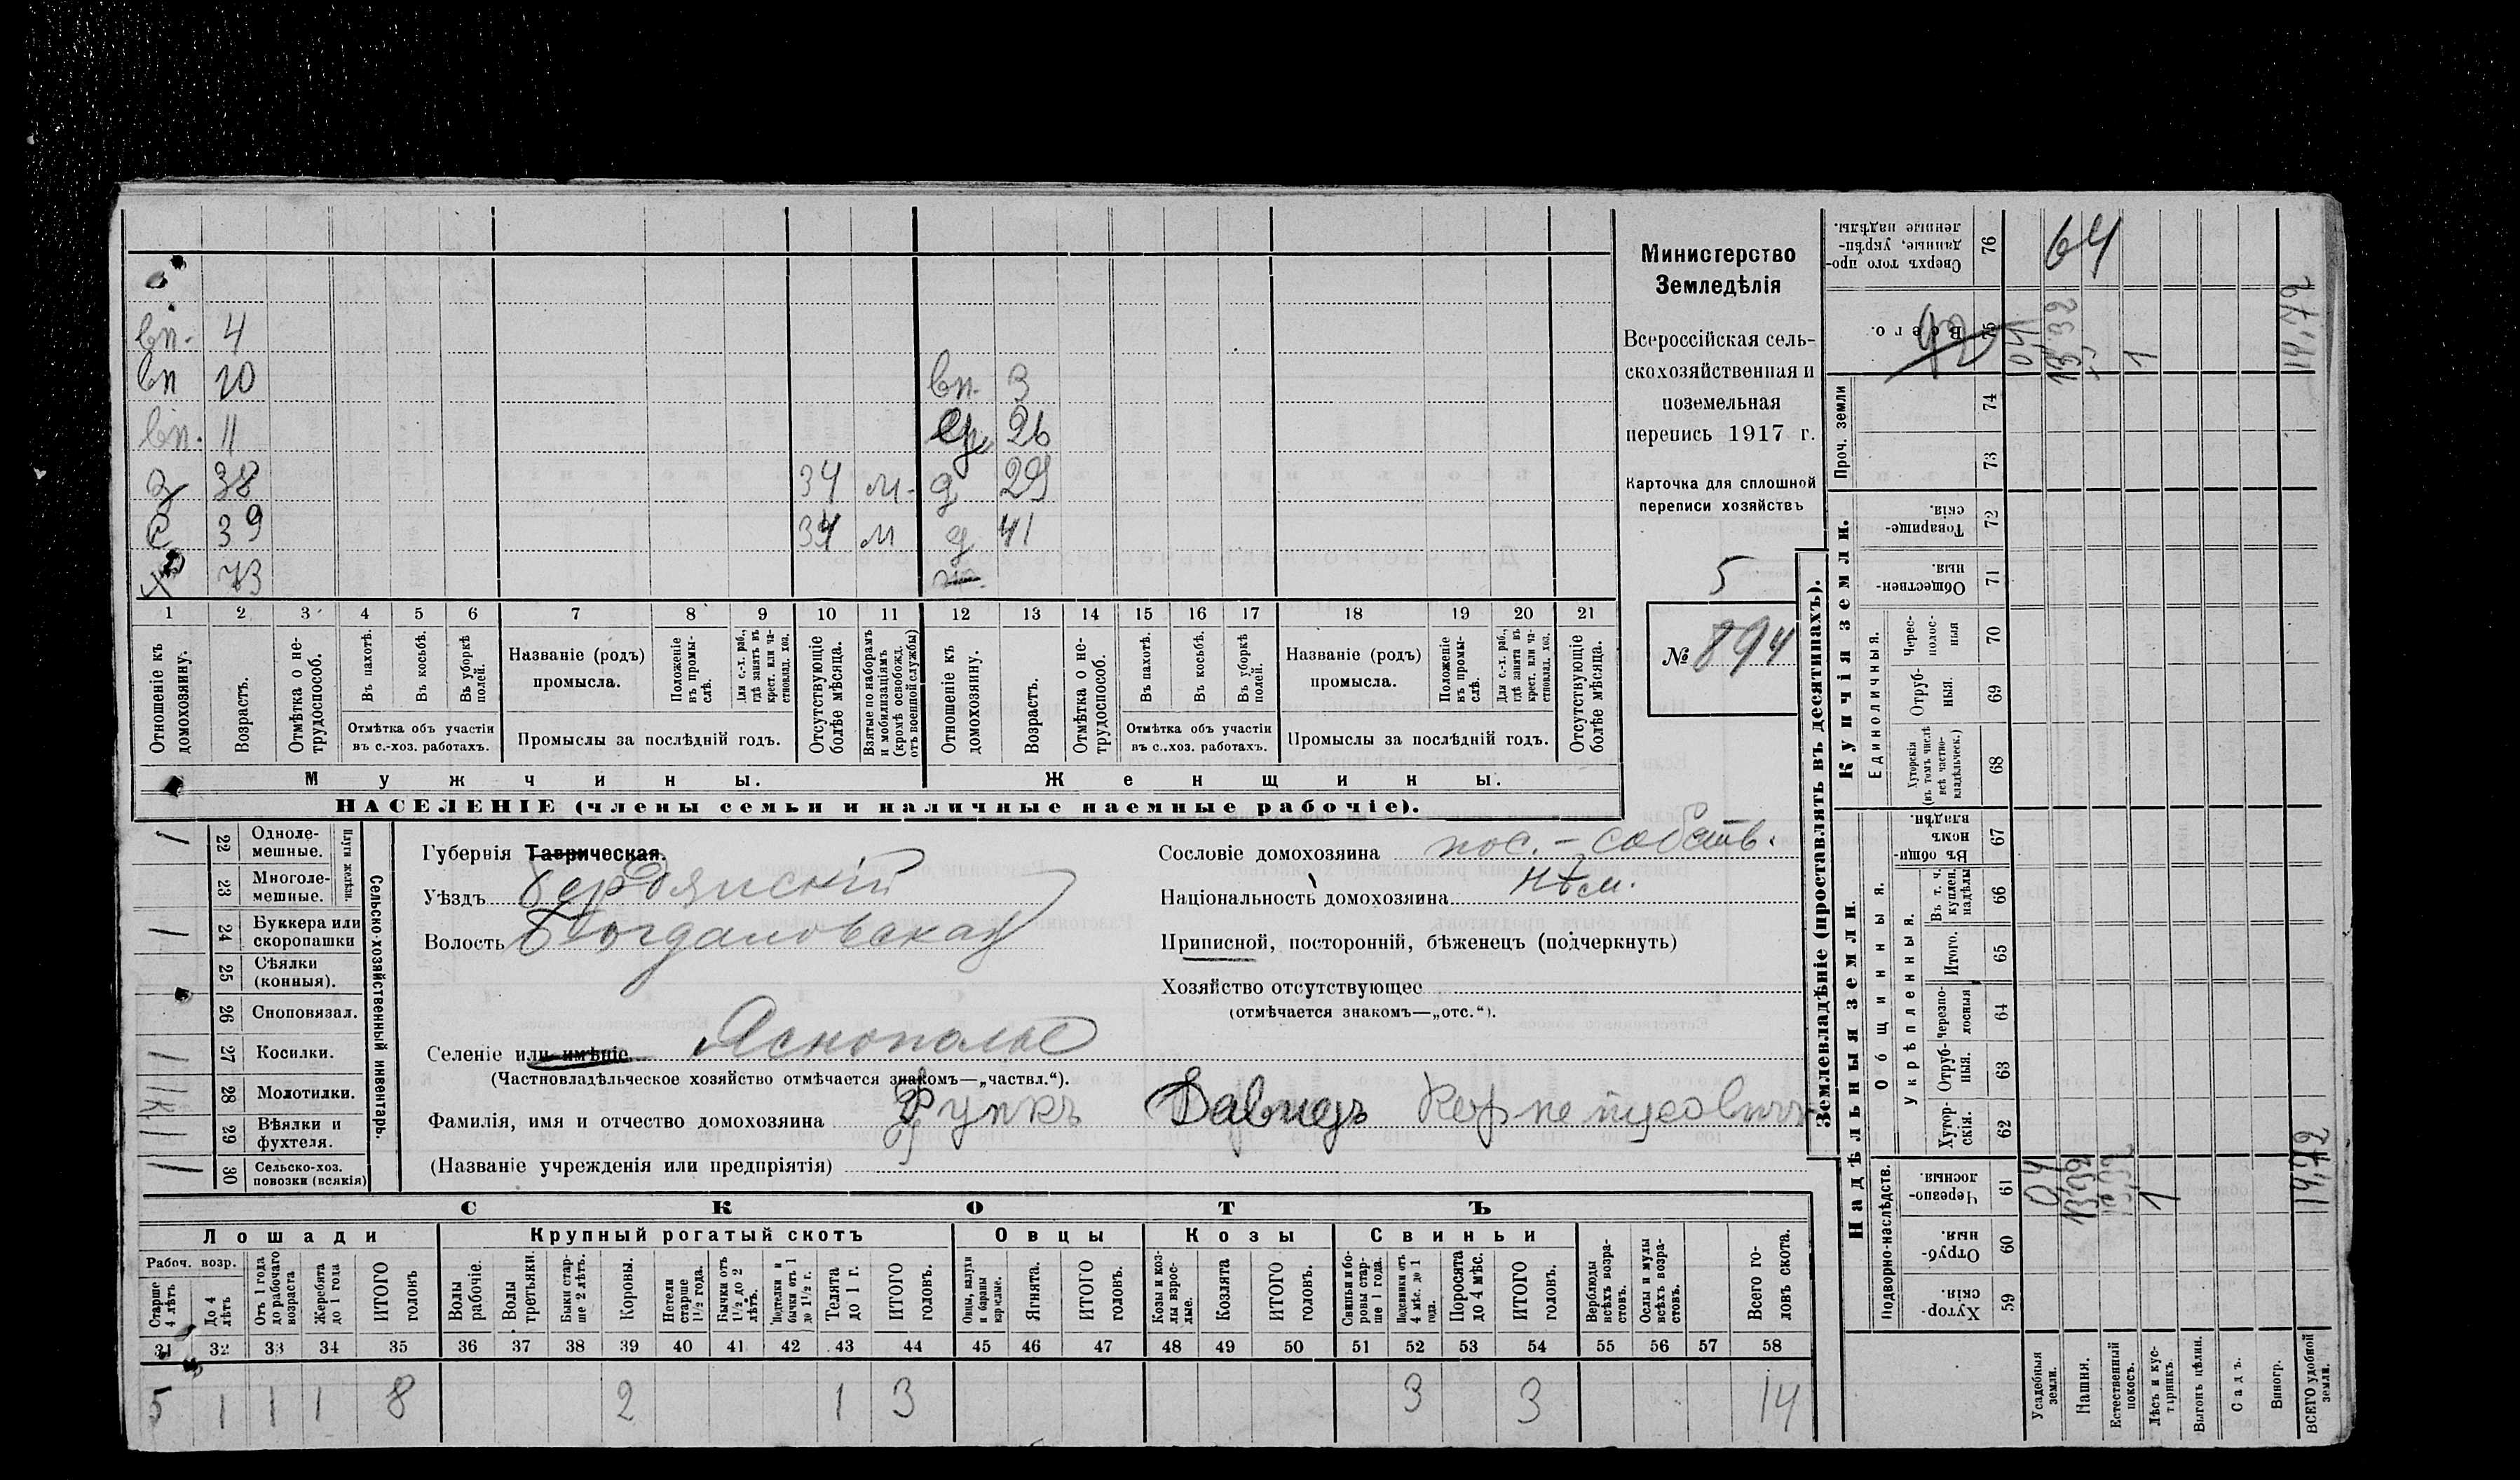 Министерство
Земледѣлія
Всероссійская сель-
скохозяйственная и
поземельная
перепись 1917 г.
Карточка для сплошной
переписи хозяйствъ
5
№ 894
вп. 4
вп 10
вп. 3
вп. 11
26
38
34 м.
д 29
с 39
34 м
д 41
х 73
1 2 3 4 5 6 7 8 9 10 11 12 13 14 15 16 17 18 19 20 21
Отношеніе къ домохозяину.
Возрастъ.
Отмѣтка о не-трудоспособ.
Въ пахотѣ.
Въ косьбѣ.
Въ уборкѣ полей.
Отмѣтка объ участіи въ с.-хоз. работахъ.
Названіе (родъ) промысла.
Положеніе въ промы-слѣ.
Для с.-х. раб., гдѣ занятъ въ крест. или ча-ствовлад. хоз.
Промыслы за послѣдній годъ.
Отсутствующіе болѣе мѣсяца.
Взятые по наборамъ и мобилизаціямъ (кромѣ освобожд. отъ военной службы)
Отношеніе къ домохозяину.
Возрастъ.
Отмѣтка о не-трудоспособ.
Въ пахотѣ.
Въ косьбѣ.
Въ уборкѣ полей.
Отмѣтка объ участіи въ с..хоз. работахъ.
Названіе (родъ) промысла.
Положеніе въ промы-слѣ.
Для с.-х. раб., гдѣ занята въ крест. или ча-ствовлад. хоз.
Промыслы за послѣдній годъ.
Отсутствующіе болѣе мѣсяца.
Мужчины.
Женщины.
НАСЕЛЕНІЕ (члены семьи и наличные наемные рабочіе).
Сельско-хозяйственный инвентарь.
Плуги желѣзн.
1 22 Одноле-мешные.
23 Многоле-мешные.
1 24 Буккера или скоропашки
25 Сѣялки (конныя).
26 Сноповязал.
1 27 Косилки.
28 Молотилки.
29 Вѣялки и фухтеля.
1 30 Сельско-хоз. повозки (всякія)
Губернія Таврическая.
Уѣздъ Бердянскій
Волость Богдановская
Сословіе домохозяина пос.-собств.
Національность домохозяина нѣм.
Приписной, посторонній, бѣженецъ (подчеркнуть)
Хозяйство отсутствующее
(отмѣчается знакомъ—„отс.“).
Селеніе или имѣніе Яснополье
(Частновладѣльческое хозяйство отмѣчается знакомъ—„частвл.“).
Фамилія, имя и отчество домохозяина Функъ Давидъ Корнелиусовичъ
(Названіе учрежденія или предпріятія)
СКОТЪ
Лошади
Крупный рогатый скотъ
Овцы
Козы
Свиньи
Рабоч. возр.
Старше 4 лѣтъ
До 4 лѣтъ
Отъ 1 года до рабочаго возраста
Жеребята до 1 года
ИТОГО головъ
Волы рабочіе.
Волы третьяки.
Быки стар-ше 2 лѣтъ.
Коровы.
Нетели старше 1½ года.
Бычки отъ 1½ до 2 лѣтъ.
Подтелки и бычки отъ 1 до 1½ г.
Телята до 1 г.
ИТОГО головъ.
Овцы, валухи и бараны взрослые.
Ягнята.
ИТОГО головъ.
Козы и коз-лы взрос-лые.
Козлята
ИТОГО головъ.
Свиньи и бо-ровы стар-ше 1 года.
Подсвинки отъ 4 мѣс. до 1 года.
Поросята до 4 мѣс.
ИТОГО головъ.
Верблюды всѣхъ возра-стовъ.
Ослы и мулы всѣхъ возра-стовъ.
Всего го-ловъ скота.
31 32 33 34 35 36 37 38 39 40 41 42 43 44 45 46 47 48 49 50 51 52 53 54 55 56 57 58
5 1 1 1 8 2 1 3 3 3 14
Землевладѣніе (проставлять въ десятинахъ).
Надѣльныя земли.
Купчія земли.
Проч. земли
Подворно-наслѣдств.
Общинныя.
Укрѣпленныя.
Единоличныя.
Сверхъ того про-данные, укрѣп-ленные надѣлы. 76
64
Всего. 75
0,4
13 32
1
14,72
74
73
Товарище-скія. 72
Обществен-ныя. 71
Черес-полос-ныя 70
Отруб-ныя. 69
Хуторскія (въ томъ числѣ всѣ частно-владѣльческ.) 68
Въ общи-номъ владѣн. 67
Въ т. ч. куплен. надѣлы 66
Итого. 65
Черезпо-лосныя 64
Отруб-ныя. 63
Хутор-скія. 62
Черезпо-лосныя 61
0,4
1
14,72
Отруб-ныя. 60
Хутор-скія. 59
Усадебныя земли.
Пашня.
Естественный покосъ.
Лѣсъ и кус-тарникъ.
Выгонъ цѣлин.
Садъ.
Виногр.
ВСЕГО удобной земли.